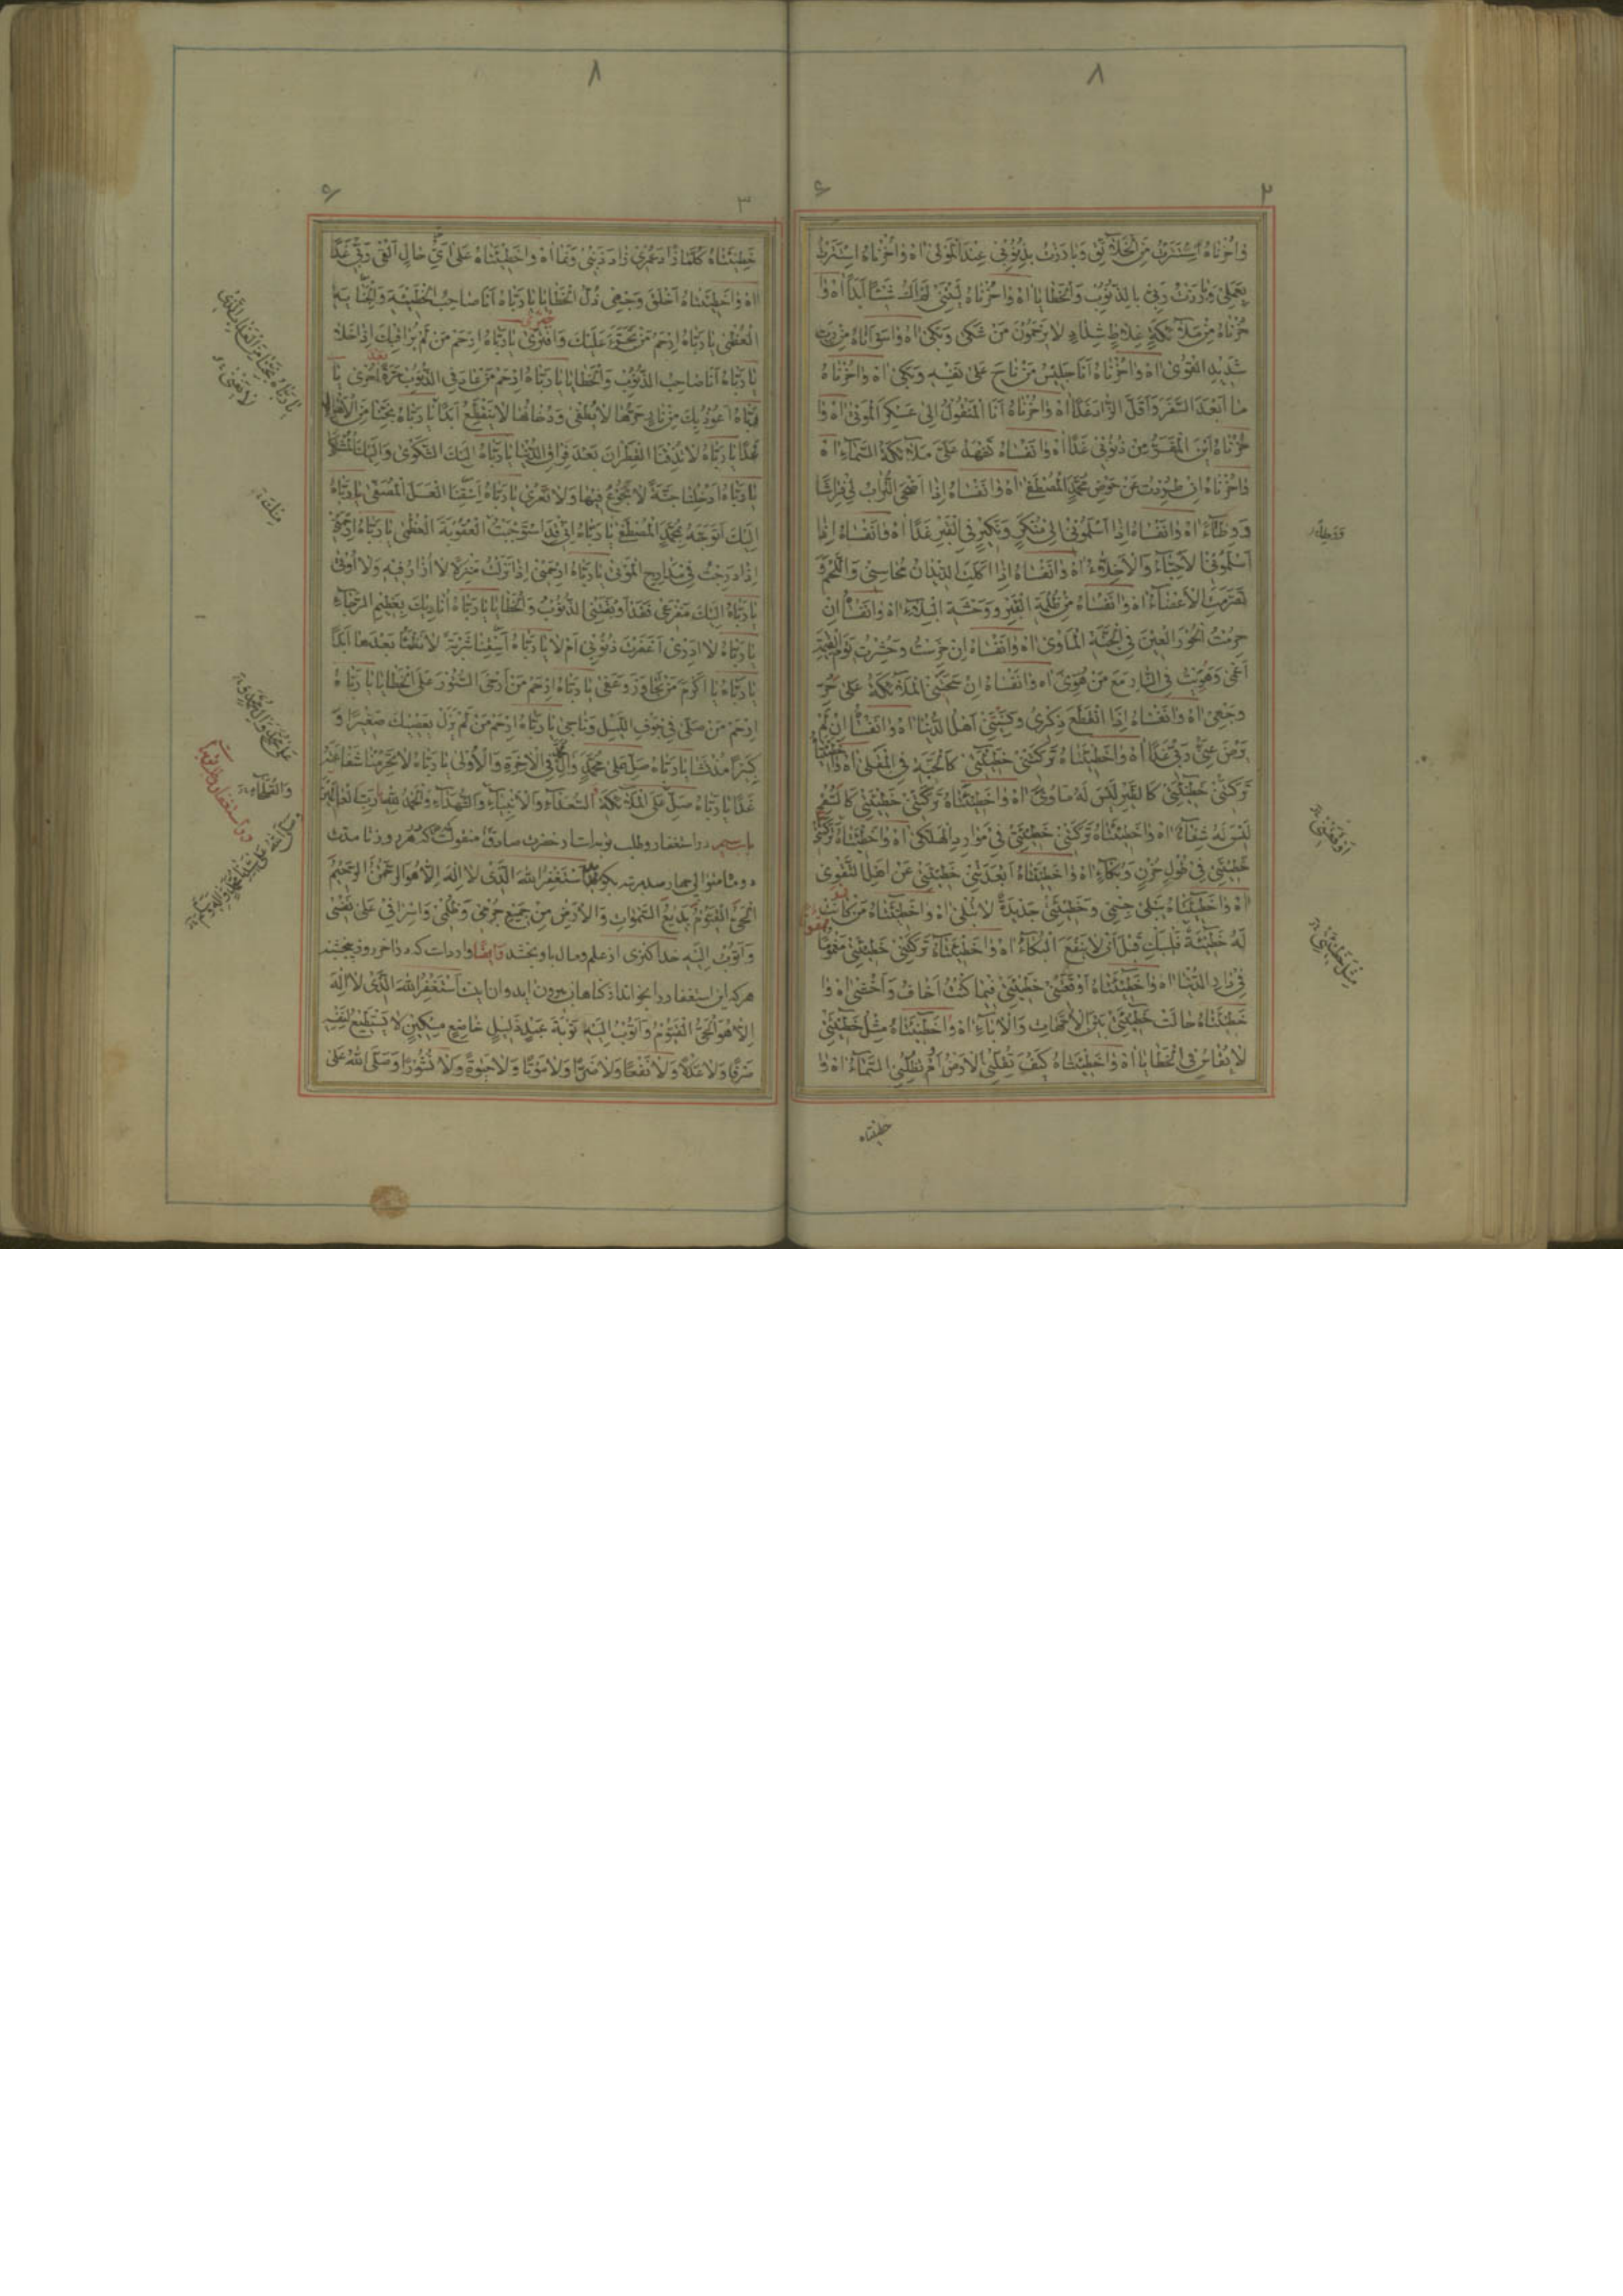 ٨
٢
واحزناه استترت من الخلائق وبادرت بذنوبي عند المولى اه واحزناه استترت
بعملي وبارزت ربي بالذنوب والخطايا اه واحزناه ليتني لم اك شيئا ابدا اه وا
حزناه من ملائكة غلاظ شداد لا يرحمون من شكى وبكى اه واسواتاه من رب
شديد القوى اه واحزناه انا جليس من ناح على نفسه وبكى اه واحزناه
ما ابعد السفر واقل الزاد غدا اه واحزناه انا المنقول الى عسكر الموتى اه وا
حزناه اين المفر من ذنوبي غدا اه وانفساه تشهد على ملائكة السماء اه
واحزناه ان طردت عن حوض محمد المصطفى اه وانفساه اذا اضحى التراب لي فراشا
ووطاء اه وانفساه اذا اسلموني الى منكر ونكير في القبر غدا اه وانفساه اذا
اسلموني الاحباء والاخلاء اه وانفساه اذا اكلت الديدان محاسني واللحم و
تعريت الاعضاء اه وانفساه من ظلمة القبر ووحشة البلاء اه وانفساه ان
حرمت الحور العين في الجنة الماوى اه وانفساه ان خرست وحشرت يوم القيمة
اعمى وهويت في النار مع من هوى اه وانفساه ان سحبتني الملائكة على حر
وجهي اه وانفساه اذا انقطع ذكرى ونسيني اهل الدنيا اه وانفساه ان لم
يرض عني ربي غدا اه واخطيئتاه تركتني خطيئتي كالحبة في المقلى اه وا
تركتني خطيئتي كالطير ليس له ماوى اه واخطيئتاه تركتني خطيئتي كالسقيم
ليس له شفاء اه واخطيئتاه تركتني خطيئتي في موارد الهلكى اه واخطيئتاه تركتني
خطيئتي في طول حزن وبكاء اه واخطيئتاه ابعدتني خطيئتي عن اهل التقوى
اه واخطيئتاه يبلى جسمي وخطيئتي جديدة لا تبلى اه واخطيئتاه من كانت
له خطيئة فليبك قبل ان لا ينفع البكاء اه واخطيئتاه تركتني خطيئتي مغموما
في دار الدنيا اه واخطيئتاه اوقعتني خطيئتي فيما كنت اخاف واخشى اه وا
خطيئتاه حالت خطيئتي بين الامهات والاباء اه واخطيئتاه مثل خطيئتي
لا يقاس في الخطايا اه واخطيئتاه كيف تقلني الارض ام تظلني السماء اه وا
خطيئتاه
ووطاء
مثل خطيئتي
٨
٣
خطيئتاه كلما زاد عمري زاد ذنبي ونما اه واخطيئتاه على اي حال القى ربي غدا
اه واخطيئتاه اخلق وجهي ذل الخطايا يا رباه انا صاحب الخطيئة والجناية
العظمى يا رباه ارحم من تجرء عليك وافترى يا رباه ارحم من لم يراقبك اذا خلا
يا رباه انا صاحب الذنوب والخطايا يا رباه ارحم من عاد في الذنوب مرة اخرى يا
رباه اعوذ بك من نار حرها لا يطفى ودخانها لا ينقطع ابدا يا رباه نجنا من
غدا يا رباه لا تذقنا القطران بعد فراق الدنيا يا رباه اليك الشكوى واليك المشتكى
يا رباه ادخلنا جنة لا نجوع فيها ولا نعرى يا رباه اسقنا العسل المصفى يا رباه
اليك اتوجه بمحمد المصطفى يا رباه اني قد استوجبت العقوبة العظمى يا رباه ارحمني
اذا درجت في مدارج الموتى يا رباه ارحمني اذا نزلت منزلا لا ازار فيه ولا اوتى
يا رباه اليك مفزعي فقد اوبقتني الذنوب والخطايا يا رباه اناديك بعظيم الرجاء
يا رباه لا ادري اغفرت ذنوبي ام لا يا رباه اسقنا شربة لا نظمأ بعدها ابدا
يا رباه يا اكرم من تجاوز وعفى يا رباه ارحم من ارخى الستور على الخطايا يا رباه
ارحم من صلى في جوف الليل وناجى يا رباه ارحم من لم يزل يعصيك صغيرا و
كبيرا مذ نشا يا رباه صل على محمد واله في الاخرة والاولى يا رباه لا تحرمنا شفاعته
غدا يا رباه صل على الملائكة السعداء والانبياء والشهداء والحمد لله رب العالمين
باب سيم در استغفار و طلب توبه است از حضرت صادق منقولست كه هر روز تا مدت
دو ماه متوالي چهار صد مرتبه بگويد استغفر الله الذي لا اله الا هو الرحمن الرحيم
الحي القيوم بديع السموات والارض من جميع جرمي وظلمي واسرافي على نفسي
واتوب اليه خدا كنزى از علم و مال باو بخشد وايضا وارداست كه
هر كه اين استغفار را بخواند از گناهان بيرون ايد و ان اينست استغفر الله الذي لا اله
الا هو الحي القيوم واتوب اليه توبة عبد ذليل خاضع مسكين لا يستطيع لنفسه
صرفا ولا عدلا ولا نفعا ولا ضرا ولا موتا ولا حيوة ولا نشورا وصلى الله على